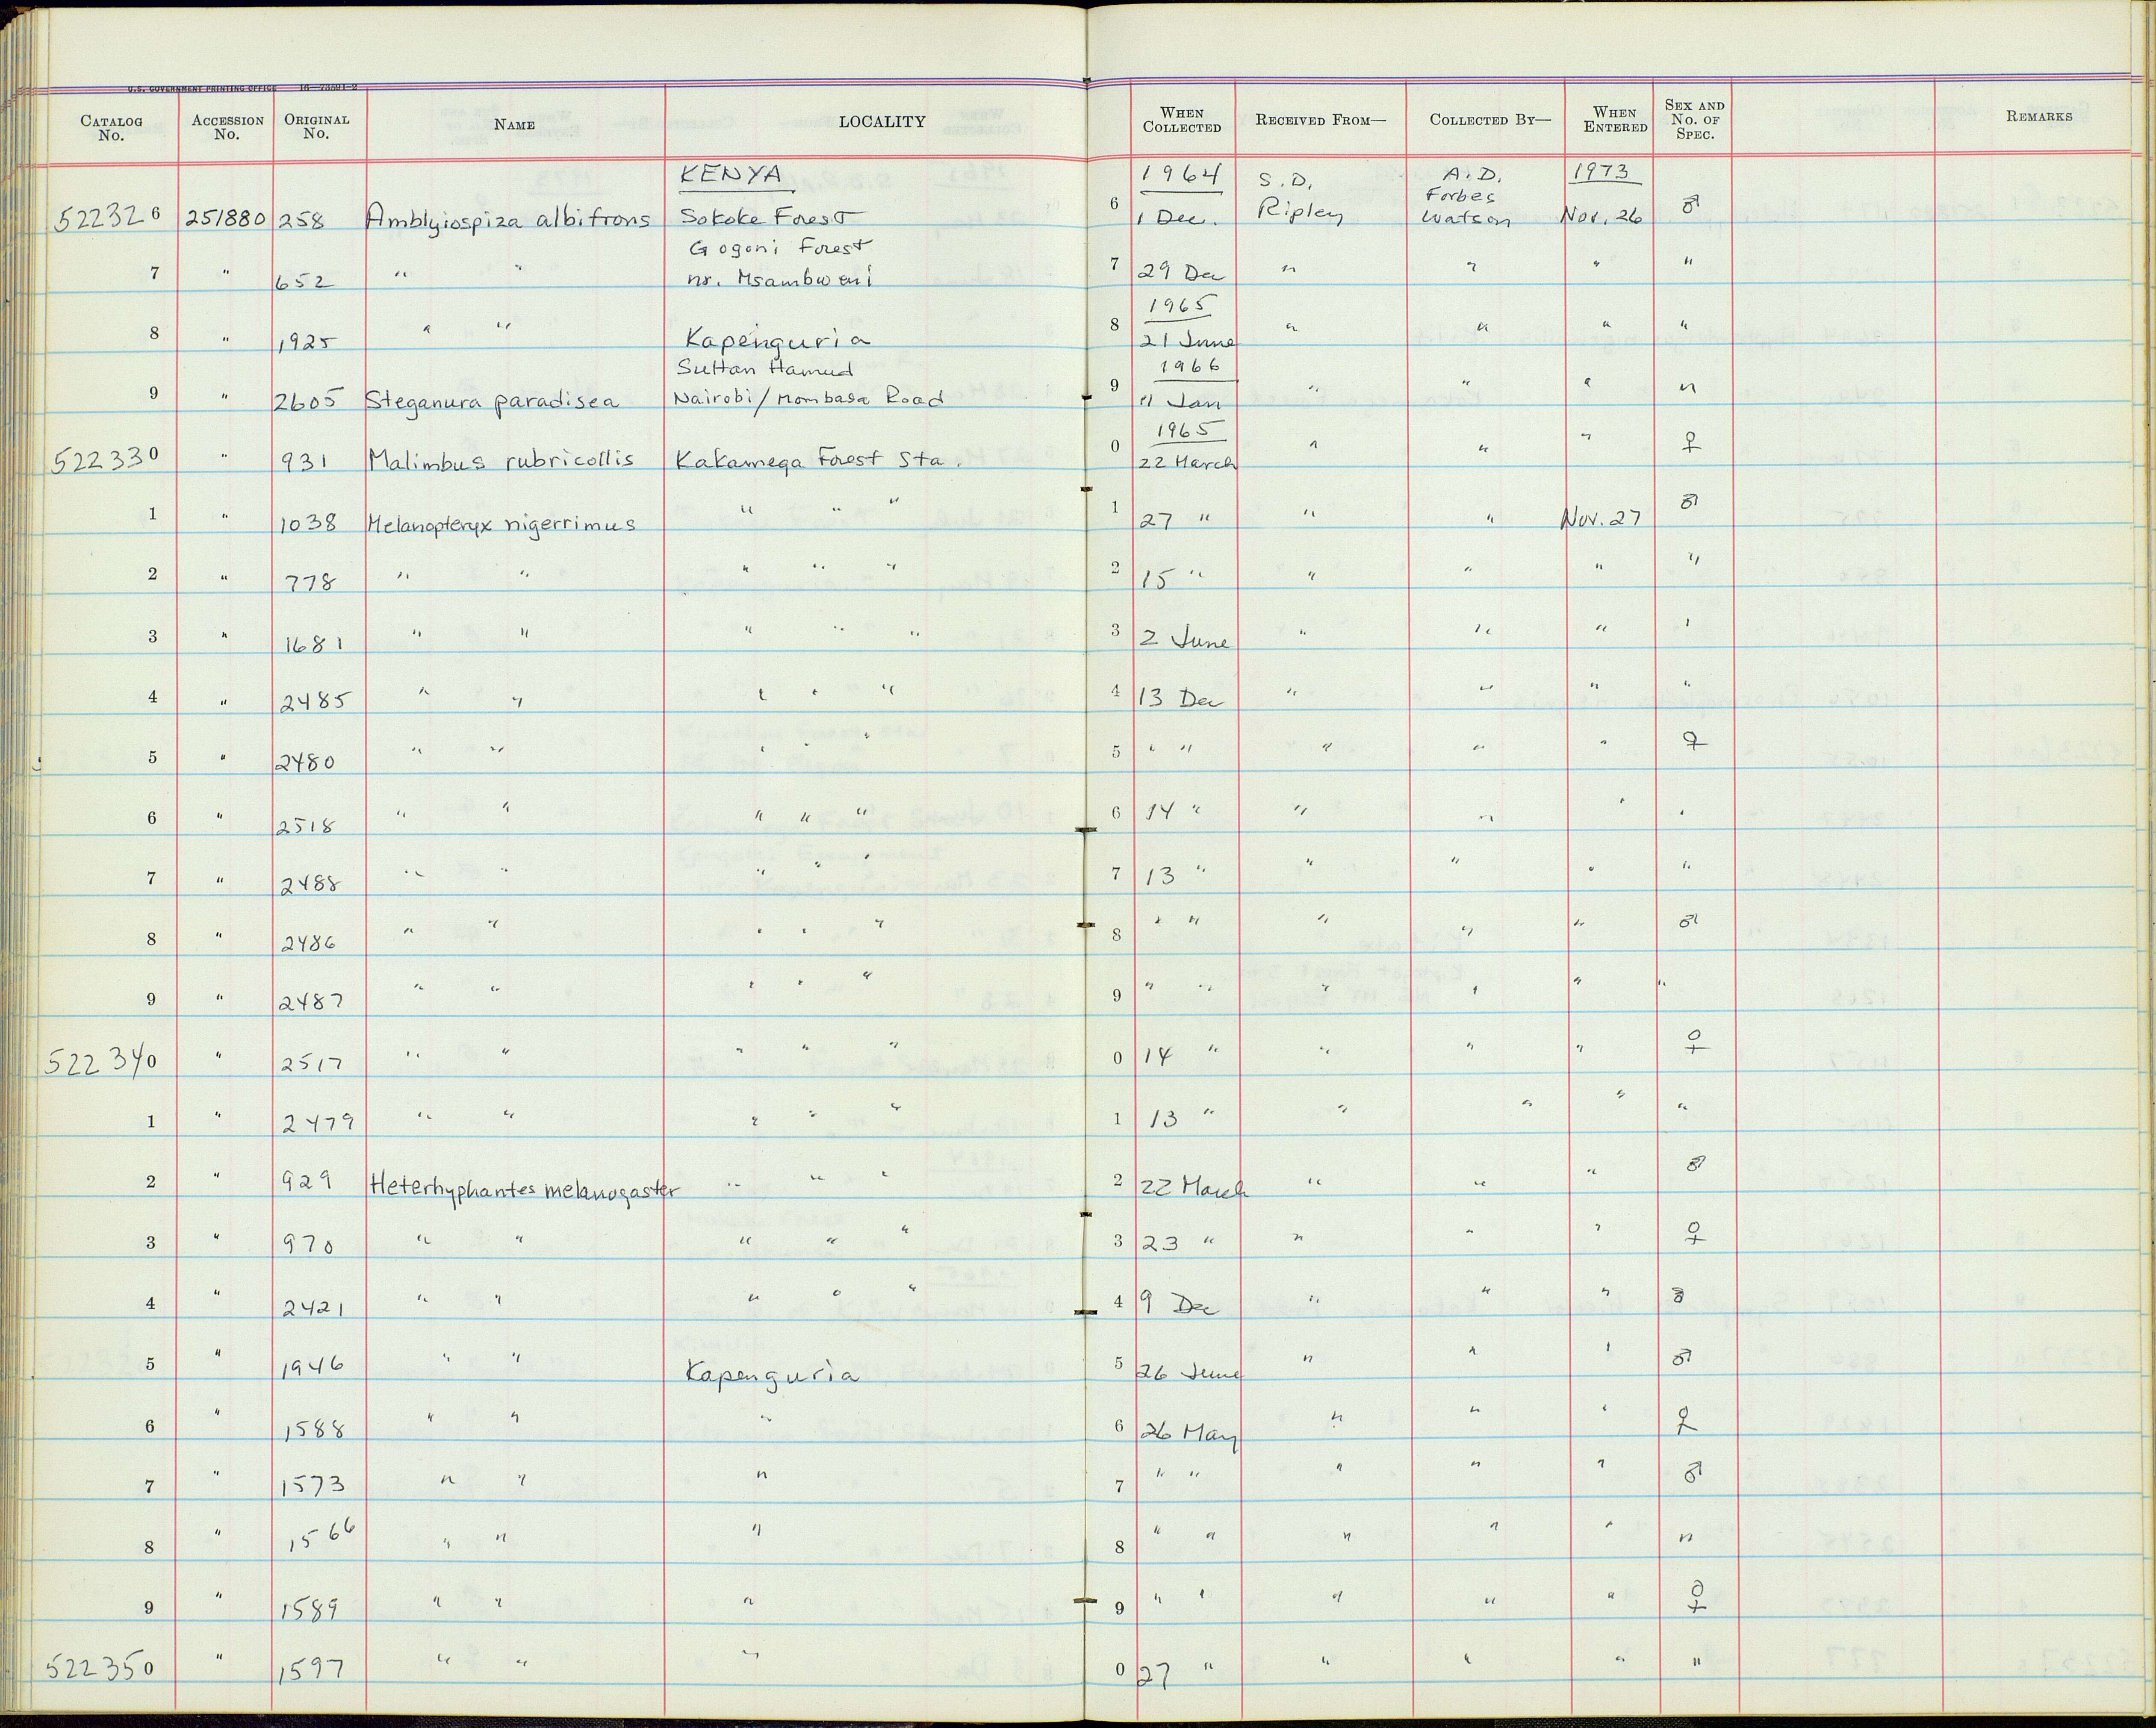 U.S. GOVERNMENT PRINTING OFFICE 16—73591-2
CATALOG No. ACCESSION No. ORIGINAL No. NAME LOCALITY WHEN COLLECTED RECEIVED FROM— COLLECTED BY— WHEN ENTERED SEX AND No. OF SPEC. REMARKS
KENYA 1964 S.D. A.D. 1973
522326 251880 258 Amblyiospiza albifrons Sokoke Forest 6 1 Dec. Ripley Forbes Watson Nov. 26 ♂
Gogoni Forest
7 " 652 " " nr. Msambweni 7 29 Dec " " " "
1965
8 " 1925 " " Kapenguria 8 21 June " " " "
Sultan Hamud 1966
9 " 2605 Steganura paradisea Nairobi/Mombasa Road 9 11 Jan " " " "
1965
522330 " 931 Malimbus rubricollis Kakamega Forest Sta. 0 22 March " " " ♀
1 " 1038 Melanopteryx nigerrimus " " " 1 27 " " " Nov. 27 ♂
2 " 778 " " " " " 2 15 " " " " "
3 " 1681 " " " " " 3 2 June " " " "
4 " 2485 " " " " " 4 13 Dec " " " "
5 " 2480 " " " " " 5 " " " " " ♀
6 " 2518 " " " " " 6 14 " " " " "
7 " 2488 " " " " " 7 13 " " " " "
8 " 2486 " " " " " 8 " " " " " ♂
9 " 2487 " " " " " 9 " " " " " "
522340 " 2517 " " " " " 0 14 " " " " ♀
1 " 2479 " " " " " 1 13 " " " " "
2 " 929 Heterhyphantes melanogaster " " " 2 22 March " " " ♂
3 " 970 " " " " " 3 23 " " " " ♀
4 " 2421 " " " " " 4 9 Dec " " " ♂
5 " 1946 " " Kapenguria 5 26 June " " " ♂
6 " 1588 " " " 6 26 May " " " ♀
7 " 1573 " " " 7 " " " " " ♂
8 " 1566 " " " 8 " " " " " "
9 " 1589 " " " 9 " " " " " ♀
522350 " 1597 " " " 0 27 " " " " "